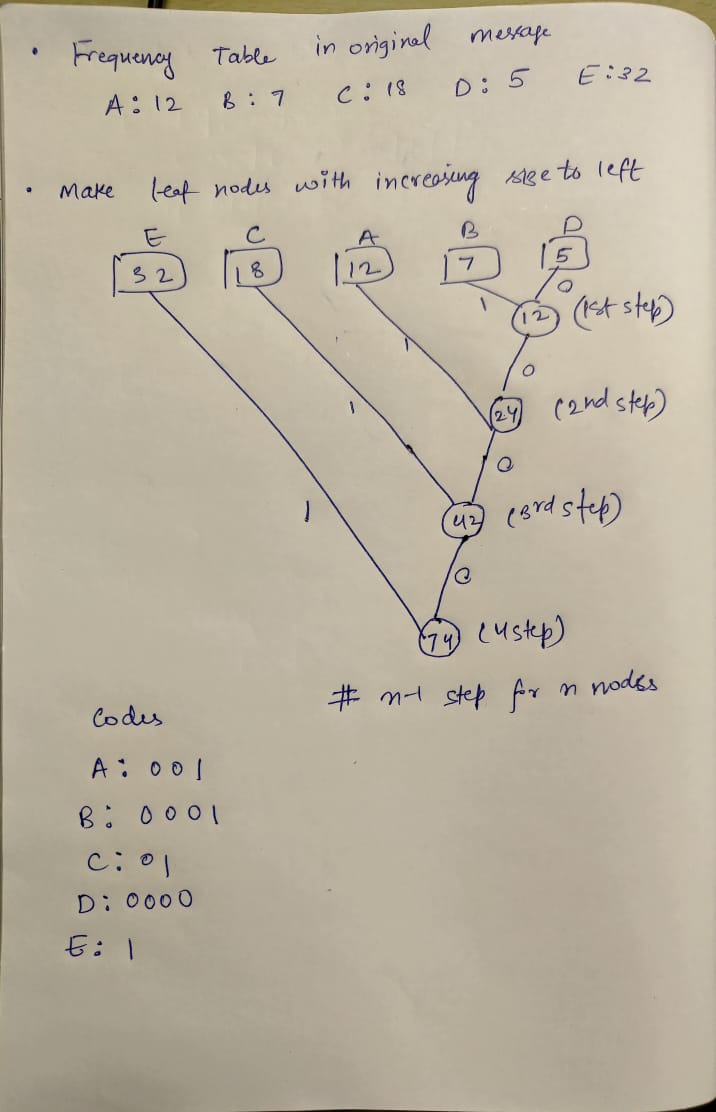 • Frequency Table in original message
A: 12 B: 7 C: 18 D: 5 E: 32
• Make leaf nodes with increasing size to left
E C A B D
32 18 12 7 5
1 0
12 (1st step)
1 0
24 (2nd step)
1 0
42 (3rd step)
1 0
74 (4 step)
# n-1 step for n nodes
Codes
A: 001
B: 0001
C: 01
D: 0000
E: 1